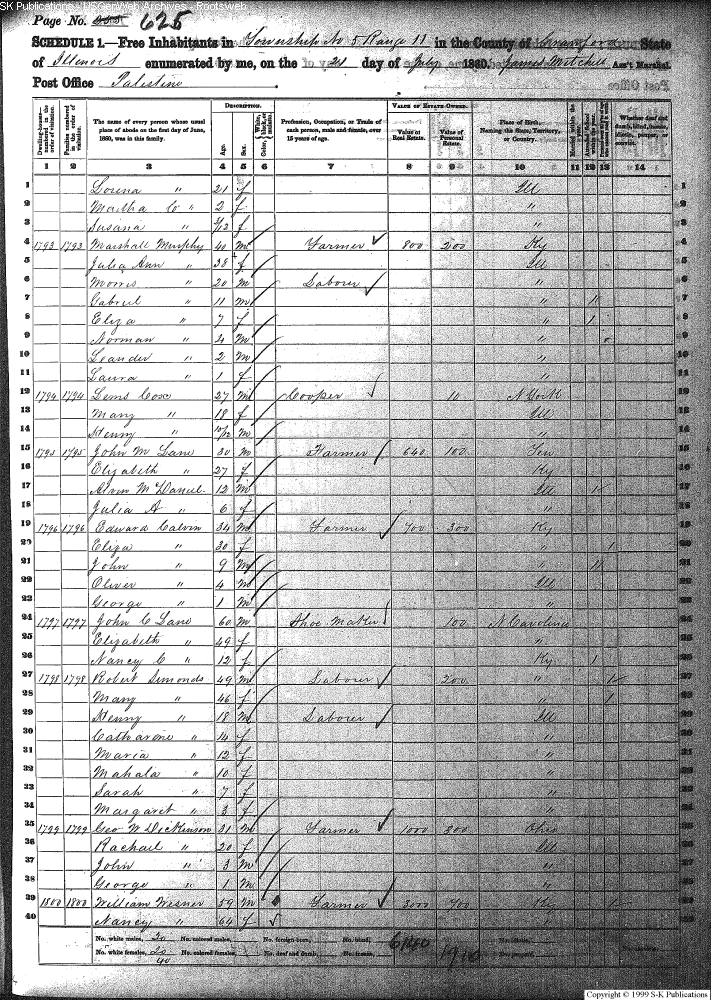 SK Publications - USGenWeb Archives - Rootsweb
Page No. 625
SCHEDULE 1.—Free Inhabitants in Township No 5 Range 11 in the County of Crawford State
of Illinois enumerated by me, on the 21 day of July 1860. James Mitchell Ass't Marshal.
Post Office Palestine
Dwelling-houses— numbered in the order of visitation.
Families numbered in the order of visitation.
The name of every person whose usual place of abode on the first day of June, 1860, was in this family.
DESCRIPTION.
Age.
Sex.
Color, White, black, or mulatto.
Profession, Occupation, or Trade of each person, male and female, over 15 years of age.
VALUE OF ESTATE OWNED.
Value of Real Estate.
Value of Personal Estate.
Place of Birth, Naming the State, Territory, or Country.
Whether deaf and dumb, blind, insane, idiotic, pauper, or convict.
1 2 3 4 5 6 7 8 9 10 11 12 13 14
1 Lorena " 21 f Ill 1
2 Martha C " 2 f " 2
3 Susana " 3/12 f " 3
4 1793 1793 Marshall Murphy 40 m Farmer 800 200 Ky 4
5 Julia Ann " 38 f Ill 5
6 Morris " 20 m Labourer " 6
7 Gabriel " 11 m " 1 7
8 Eliza " 7 f " 1 8
9 Norman " 4 m " 9
10 Leander " 2 m " 10
11 Laura " 1 f " 11
12 1794 1794 Lems Cox 27 m Cooper 10 N York 12
13 Mary " 18 f Ill 13
14 Henry " 10/12 m " 14
15 1795 1795 John M Lane 30 m Farmer 640 100 Ten 15
16 Elizabeth " 27 f Ky 16
17 M Daniel 12 m Ill 1 17
18 Julia A " 6 f " 18
19 1796 1796 Edward Calvin 34 m Farmer 700 300 Ky 19
20 Eliza " 30 f " 1 20
21 John " 9 m " 1 21
22 Oliver " 4 m Ill 22
23 George " 1 m " 23
24 1797 1797 John C Lane 60 m Shoe Maker 100 N Carolina 24
25 Elizabeth " 49 f " 25
26 Nancy C " 12 f Ky 1 26
27 1798 1798 Robert Simonds 49 m Labourer 200 " 1 27
28 Mary " 46 f " 1 28
29 Henry " 18 m Labourer Ill 29
30 Catharine " 14 f " 30
31 Maria " 12 f " 31
32 Mahala " 10 f " 32
33 Sarah " 7 f " 33
34 Margaret " 3 f " 34
35 1799 1799 Geo W Dickinson 31 m Farmer 1000 300 Ohio 35
36 Rachael " 20 f Ill 36
37 John " 3 m " 37
38 George " 1 m " 38
39 1800 1800 William Wesner 59 m Farmer 3000 400 Ky 39
40 Nancy " 64 f " 40
No. white males, 20 No. colored males, No. foreign born, No. blind, 6140 1910 No. idiotic,
No. white females, 20 No. colored females, No. deaf and dumb, No. insane,
40
Copyright © 1999 S-K Publications